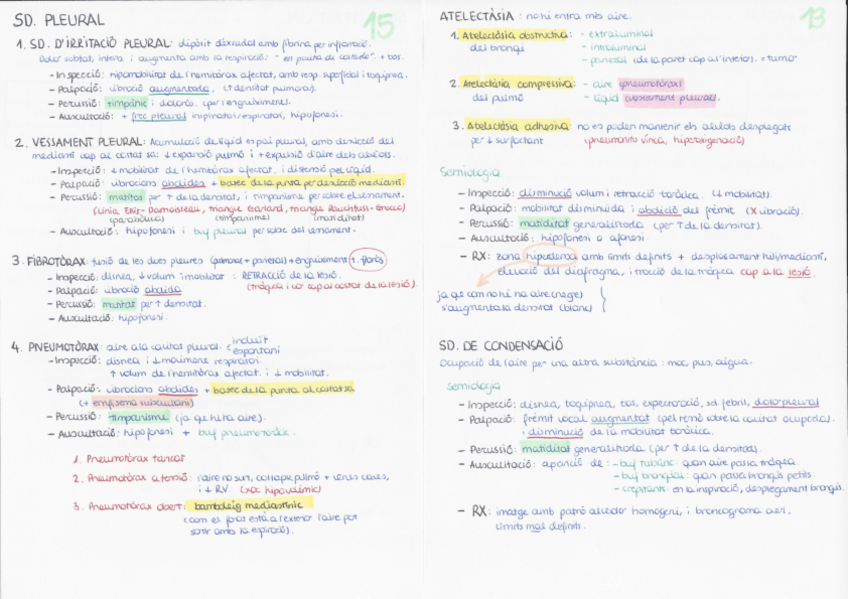 SD. PLEURAL
15
1. SD. D'IRRITACIÓ PLEURAL: dipòsit d'exsudat amb fibrina per infamació.
Dolor subtat, intens i augmenta amb la respiració: "en punta de costado". + tos.
- Inspecció: hipomobilitat de l'hemitòrax afectat, amb resp. superficial i taquipnea.
- Palpació: vibració augmentada (↑ densitat pulmonar).
- Percussió: timpànic i dolorós. (per engruiximent).
- Auscultació: + frec pleural inspiratori/espiratori, hipofonesi.
2. VESSAMENT PLEURAL: Acumulació de líquid espai pleural, amb desviació del
mediastí cap al costat sa: ↓ expansió pulmó i + expulsió d'aire dels alvèols.
- Inspecció: ↓ mobilitat de l'hemitòrax afectat, i distensió pel líquid.
- Palpació: vibracions abolides + batec de la punta per desviació mediastí.
- Percussió: matitat per ↑ de la densitat, i timpanisme per sobre el vessament.
(Línia Ellis-Damoiseau, triangle Garland, triangle Rauchfuss-Grocco)
(parabòlica) (timpanisme) (maciditat)
- Auscultació: hipofonesi i buf pleural per sobre del vessament.
3. FIBROTÒRAX: fusió de les dues pleures (pulmonar + parietal) + engruiximent t. fibrós
- Inspecció: dispnea, ↓ volum i mobilitat: RETRACCIÓ DE LA LESIÓ.
- Palpació: vibració abolida (tràquea i cor cap al costat de la lesió).
- Percussió: matitat per ↑ densitat.
- Auscultació: hipofonesi.
4. PNEUMOTÒRAX: aire a la cavitat pleural. induït
espontani
- Inspecció: dispnea i ↓ moviment respiratori.
↑ volum de l'hemitòrax afectat i ↓ mobilitat.
- Palpació: vibracions abolides + batec de la punta al costat sa
(+ emfisema subcutani)
- Percussió: timpanisme (ja que hi ha aire).
- Auscultació: hipofonesi + buf pneumotoràcic
1. Pneumotòrax tancat
2. Pneumotòrax a tensió: l'aire no surt, col·lapse pulmó + venes caves,
i ↓ RV. (xoc hipovolèmic)
3. Pneumotòrax obert: bamboleig mediastínic
(com el forat està a l'exterior l'aire pot
sortir amb la espiració).
ATELECTÀSIA: no hi entra més aire.
13
1. Atelectàsia obstructiva: - extraluminal
del bronqui - intraluminal
- parietal (de la paret cap a l'interior). → tumor
2. Atelectàsia compressiva: - aire (pneumotòrax)
del pulmó - líquid (vessament pleural).
3. Atelectàsia adhesiva: no es poden mantenir els alvèols desplegats
per ↓ surfactant (pneumonitis vírica, hiperoxigenació)
Semiologia
- Inspecció: disminució volum i retracció toràcica. (↓ mobilitat).
- Palpació: mobilitat disminuïda i abolició del frèmit. (X vibració).
- Percussió: matiditat generalitzada (per ↑ de la densitat).
- Auscultació: hipofonesi o afonesi.
- RX: zona hiperdensa amb límits definits + desplaçament hili/mediastí,
elevació del diafragma, i tracció de la tràquea cap a la lesió.
ja que com no hi ha aire (negre)
s'augmenta la densitat (blanc)
SD. DE CONDENSACIÓ
Ocupació de l'aire per una altra substància: moc, pus, aigua.
Semiologia
- Inspecció: dispnea, taquipnea, tos, expectoració, sd. febril, dolor pleural
- Palpació: frèmit vocal augmentat (pel ressò sobre la cavitat ocupada).
i disminució de la mobilitat toràcica.
- Percussió: matiditat generalitzada (per ↑ de la densitat).
- Auscultació: aparició de: - buf tubàric: quan aire passa tràquea.
- buf bronquial: quan passa bronquis petits.
- crepitants: en la inspiració, desplegament bronquis.
- RX: imatge amb patró alveolar homogeni, i broncograma aeri.
Límits mal definits.